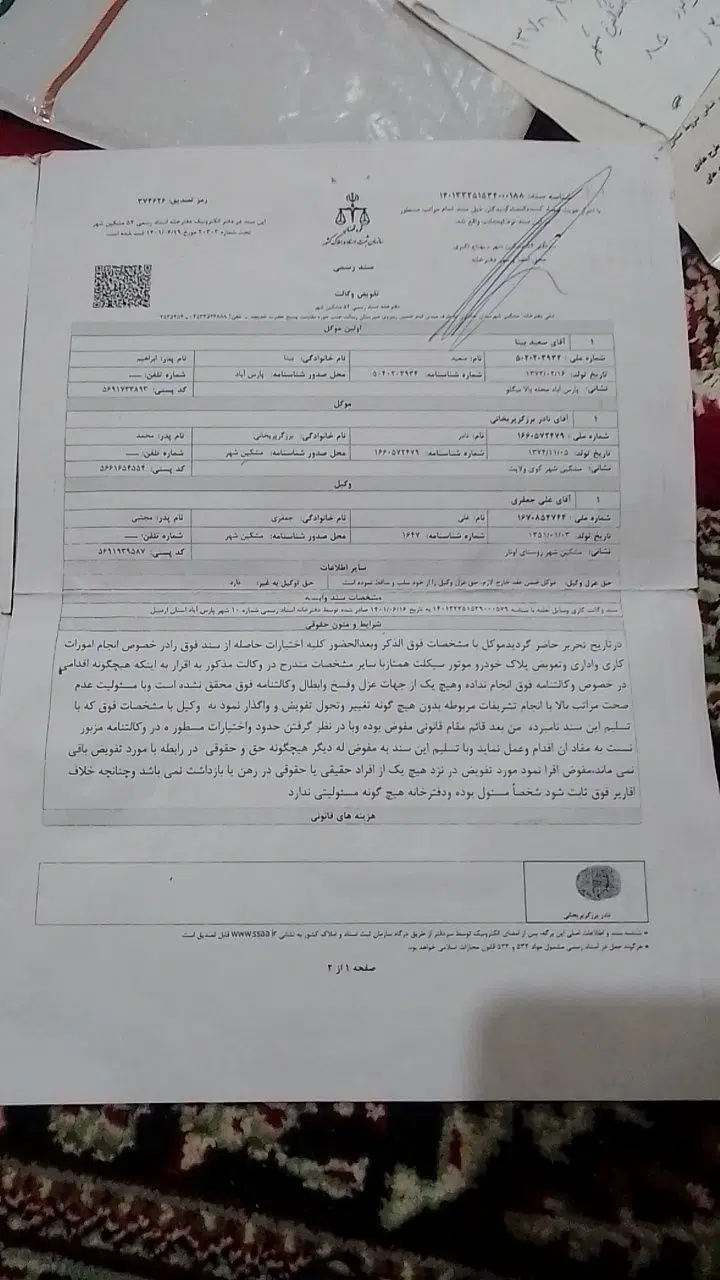 رمز تصدیق: ۳۷۴۶۲۶
شناسه سند: ۱۴۰۱۳۳۲۵۱۵۳۴۰۰۰۱۸۸
این سند در دفتر الکترونیک دفترخانه اسناد رسمی ۵۴ مشگین شهر
تحت شماره ۲۰۳۰۲ مورخ ۱۴۰۱/۰۶/۱۹ ثبت شده است
قوه قضائیه
سازمان ثبت اسناد و املاک کشور
سند رسمی
تفویض وکالت
دفترخانه اسناد رسمی ۵۴ مشگین شهر
اولین موکل
۱ آقای سعید بینا
شماره ملی: ۵۰۴۰۲۰۳۹۳۴ نام: سعید نام خانوادگی: بینا نام پدر: ابراهیم
تاریخ تولد: ۱۳۷۲/۰۲/۱۶ شماره شناسنامه: ۵۰۴۰۲۰۳۹۳۴ محل صدور شناسنامه: پارس آباد شماره تلفن: ---
نشانی: پارس آباد محله بالا بیگلو کد پستی: ۵۶۹۱۷۳۳۸۹۳
موکل
۱ آقای نادر برزگربریخانی
شماره ملی: ۱۶۶۰۵۷۲۴۷۹ نام: نادر نام خانوادگی: برزگربریخانی نام پدر: محمد
تاریخ تولد: ۱۳۷۴/۱۱/۰۵ شماره شناسنامه: ۱۶۶۰۵۷۲۴۷۹ محل صدور شناسنامه: مشگین شهر شماره تلفن: ---
نشانی: مشگین شهر کوی ولایت کد پستی: ۵۶۶۱۶۵۴۵۵۴
وکیل
۱ آقای علی جعفری
شماره ملی: ۱۶۷۰۸۵۴۷۴۴ نام: علی نام خانوادگی: جعفری نام پدر: مجتبی
تاریخ تولد: ۱۳۵۱/۰۱/۰۳ شماره شناسنامه: ۱۶۴۷ محل صدور شناسنامه: مشگین شهر شماره تلفن: ---
نشانی: مشگین شهر روستای اونار کد پستی: ۵۶۹۱۹۳۹۵۸۷
سایر اطلاعات
حق عزل وکیل: موکل ضمن عقد خارج لازم، حق عزل وکیل را از خود سلب و ساقط نموده است حق توکیل به غیر: دارد
مشخصات سند وابسته
سند وکالت کاری وسایل نقلیه با شناسه ۱۴۰۱۳۳۲۵۱۵۲۹۰۰۰۵۷۹ به تاریخ ۱۴۰۱/۰۶/۱۶ صادر شده توسط دفترخانه اسناد رسمی شماره ۱۰ شهر پارس آباد استان اردبیل
شرایط و متون حقوقی
درتاریخ تحریر حاضر گردیدموکل با مشخصات فوق الذکر وبعدالحضور کلیه اختیارات حاصله از سند فوق رادر خصوص انجام امورات
کاری واداری وتعویض پلاک خودرو موتور سیکلت همتازبا سایر مشخصات مندرج در وکالت مذکور به اقرار به اینکه هیچگونه اقدامی
در خصوص وکالتنامه فوق انجام نداده وهیچ یک از جهات عزل وفسخ وابطال وکالتنامه فوق محقق نشده است وبا مسئولیت عدم
صحت مراتب بالا با انجام تشریفات مربوطه بدون هیچ گونه تغییر وتحول تفویض و واگذار نمود به وکیل با مشخصات فوق که با
تسلیم این سند نامبرده من بعد قائم مقام قانونی مفوض بوده وبا در نظر گرفتن حدود واختیارات مسطور ه در وکالتنامه مزبور
نسبت به مفاد ان اقدام وعمل نماید وبا تسلیم این سند به مفوض له دیگر هیچگونه حق و حقوقی در رابطه با مورد تفویض باقی
نمی ماند،مفوض اقرا نمود مورد تفویض در نزد هیچ یک از افراد حقیقی یا حقوقی در رهن یا بازداشت نمی باشد وچنانچه خلاف
اقاریر فوق ثابت شود شخصاً مسئول بوده ودفترخانه هیچ گونه مسئولیتی ندارد
هزینه های قانونی
نادر برزگربریخانی
* شناسه سند و اطلاعات اصلی این برگه، پس از امضای الکترونیک توسط سردفتر از طریق درگاه سازمان ثبت اسناد و املاک کشور به نشانی www.ssaa.ir قابل تصدیق است
* هرگونه جعل در اسناد رسمی مشمول مواد ۵۳۲ و ۵۳۳ قانون مجازات اسلامی خواهد بود.
صفحه ۱ از ۲